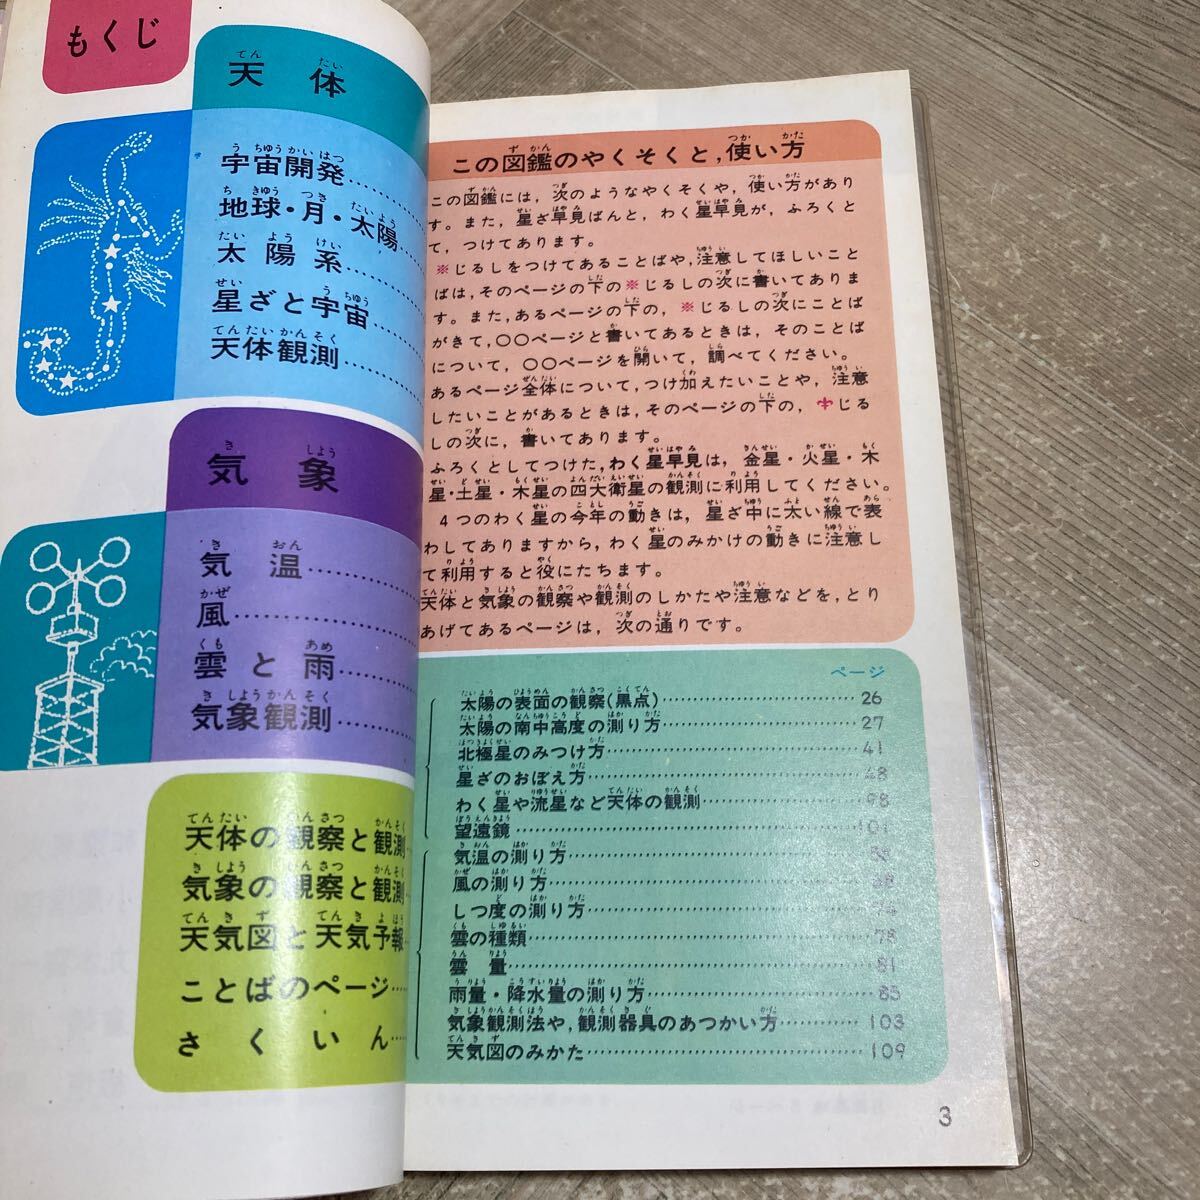 もくじ
天体
宇宙開発
地球・月・太陽
太陽系
星ざと宇宙
天体観測
気象
気温
風
雲と雨
気象観測
天体の観察と観測
気象の観察と観測
天気図と天気予報
ことばのページ
さくいん
この図鑑のやくそくと,使い方
この図鑑には,次のようなやくそくや,使い方があり
す。また,星ざ早見ばんと,わく星早見が,ふろくと
て,つけてあります。
※じるしをつけてあることばや,注意してほしいこと
ばは,そのページの下の※じるしの次に書いてありま
す。また,あるページの下の,※じるしの次にことば
がきて,〇〇ページと書いてあるときは,そのことば
について,〇〇ページを開いて,調べてください。
あるページ全体について,つけ加えたいことや,注意
したいことがあるときは,そのページの下の,⚜じる
しの次に,書いてあります。
ふろくとしてつけた,わく星早見は,金星・火星・木
星・土星・木星の四大衛星の観測に利用してください。
4つのわく星の今年の動きは,星ざ中に太い線で表
わしてありますから,わく星のみかけの動きに注意し
て利用すると役にたちます。
天体と気象の観察や観測のしかたや注意などを,とり
あげてあるページは,次の通りです。
ページ
太陽の表面の観察(黒点)……26
太陽の南中高度の測り方……27
北極星のみつけ方……41
星ざのおぼえ方……
わく星や流星など天体の観測……98
望遠鏡……101
気温の測り方……
風の測り方……68
しつ度の測り方……74
雲の種類……78
雲量……81
雨量・降水量の測り方……85
気象観測法や,観測器具のあつかい方……103
天気図のみかた……109
3